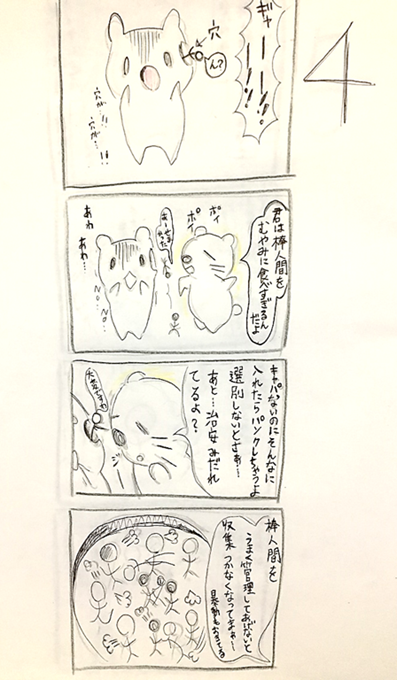 4
ギャーーー!!
穴
ん?
穴が…!!
穴が…!!
君は棒人間を
むやみに食べすぎるん
だよ
ポイ
ポイ
あーせまかった
あわ
あわ…
NO…NO…
キャパないのにそんなに
入れたらパンクしちゃうよ
選別しないとさぁ…
あと…治安みだれ
てるよ?
棒人間を
うまく管理してあげないと
収集つかなくなってきゃー
暴動もおきてる